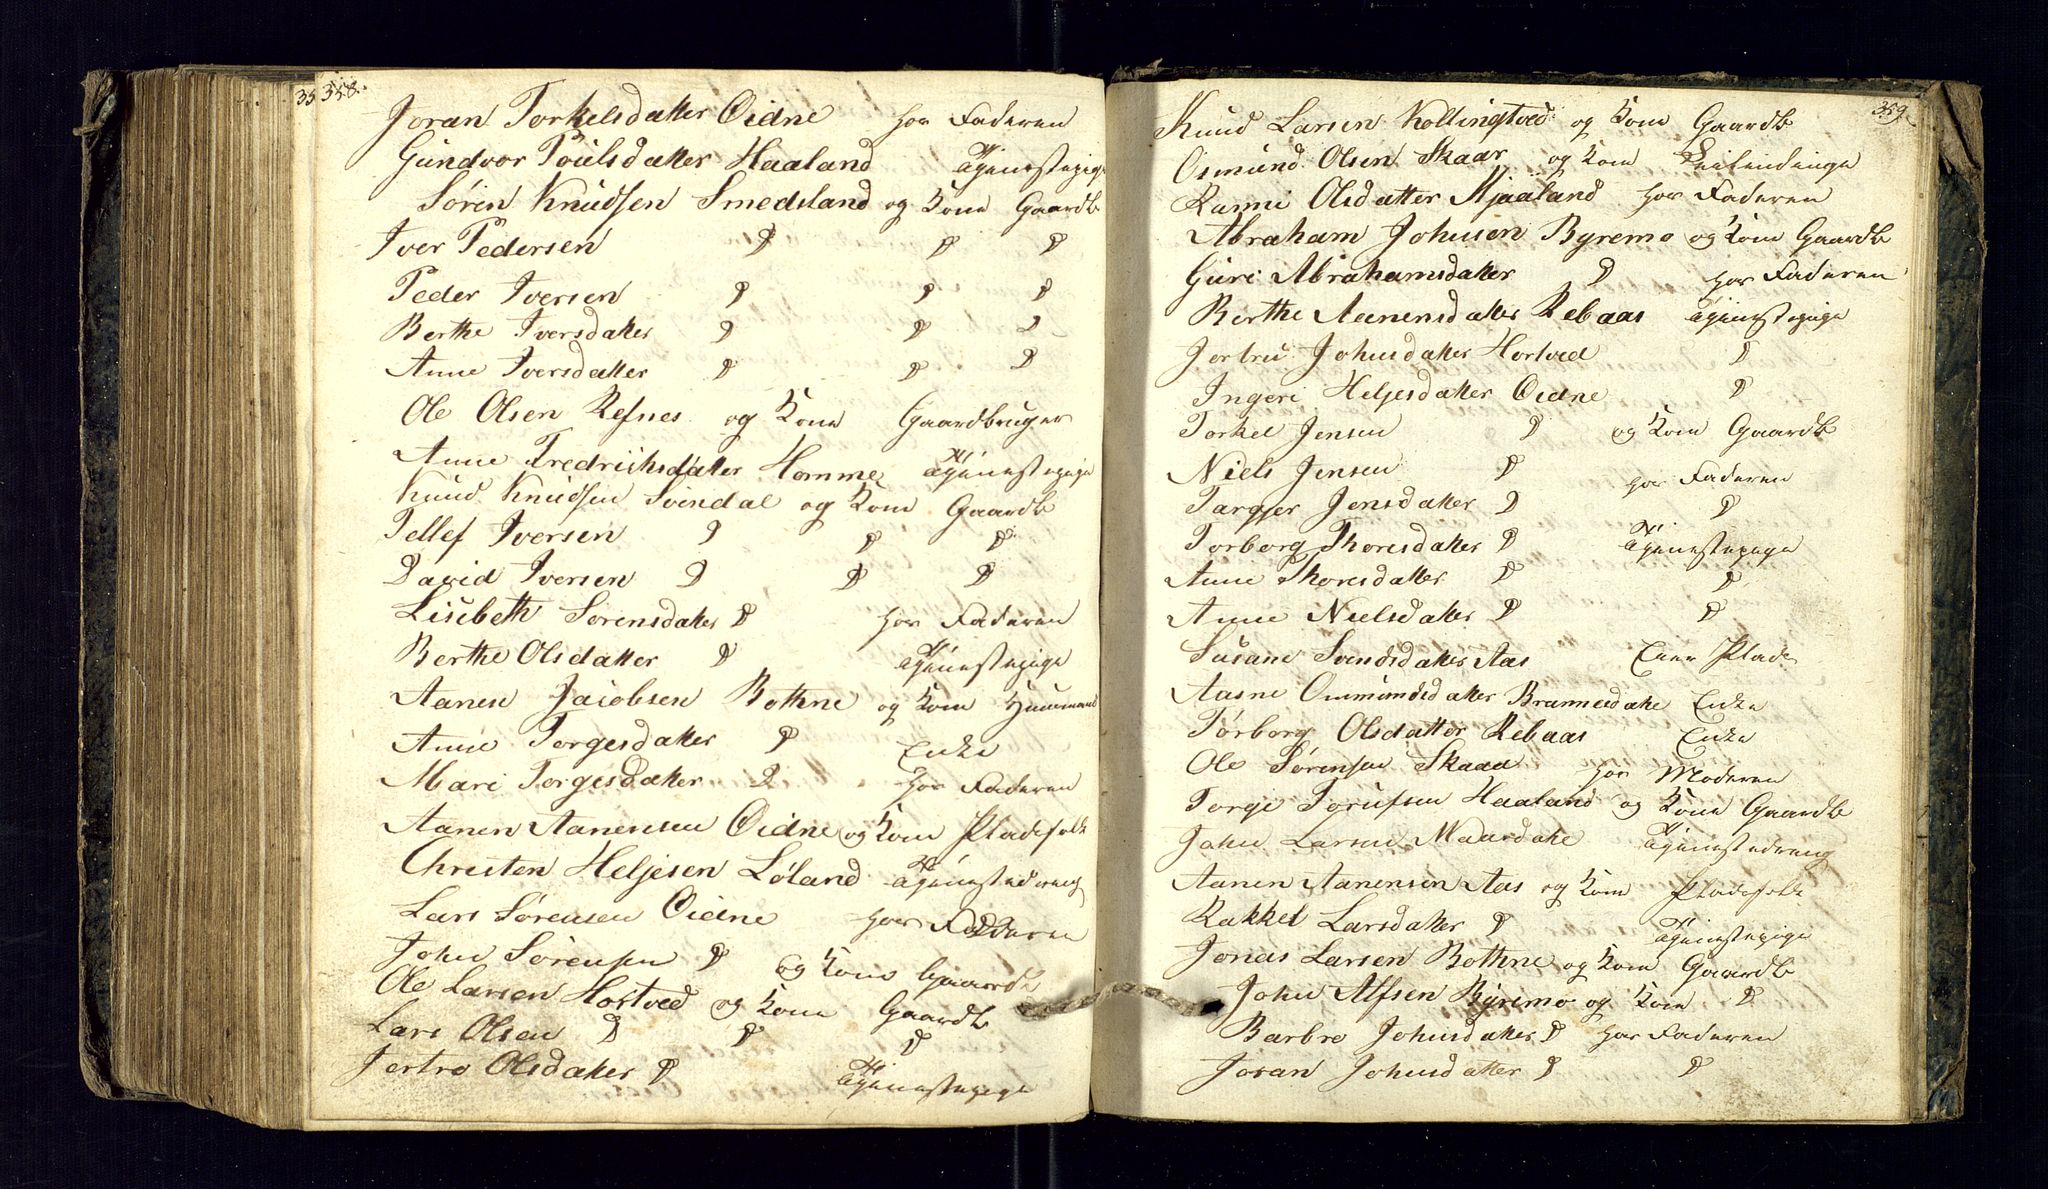 358.
Joran Torkelsdatter Oidne hos Faderen
Gundvor Poulsdatter Haaland Tjenestepige
Sørin Knudsen Smedsland og Kone Gaardb
Iver Pedersen D D D
Peder Iversen D D D
Berthe Iversdatter D D D
Anne Iversdatter D D D
Ole Olsen Refnes og Kone Gaardbruger
Anne Fredrichsdatter Homme Tjenestepige
Knud Knudsen Svindal og Kone Gaardb
Tellef Iversen D D D
David Iversen D D D
Lisebeth Sørensdatter D hos Faderen
Berthe Olsdatter D Tjenestepige
Aanen Jacobsen Bothne og Kone Huusmand
Anne Torgesdatter D Enke
Mari Torgesdatter D hos Faderen
Aanen Aanensen Oidne og Kone Pladsfolk
Christen Heljesen Løland Tjenestedreng
Lars Sørensen Oidne hos Faderen
John Sørensen D og Kone Gaardb
Ole Larsen Hortved og Kone Gaardb
Lars Olsen D D D
Jertro Olsdatter D Tjenestepige
359.
Knud Larsen Kollingtved og Kone Gaardb
Osmund Olsen Skaar og Kone Leilendinge
Ranni Olsdatter Mjaaland hos Faderen
Abraham Johnsen Byremo og Kone Gaardb
Guri Abrahamsdatter D hos Faderen
Berthe Aanensdatter Rebaas Tjenestepige
Jertru Johnsdatter Hortved D
Ingeri Heljesdatter Oidne D
Torkel Jensen D og Kone Gaardb
Niels Jensen D hos Faderen
Targjer Jensdatter D D
Torborg Thoresdatter D Tjenestepige
Anne Thoresdatter D D
Anne Nielsdatter D D
Susane Svendsdatter Aas Plads
Aasne Ommundsdatter Brannesdahe Enke
Tørborg Olsdatter Rebaas Enke
Ole Sørensen Skaaa hos Moderen
Torge Torufsen Haaland og Kone Gaardb
John Larsen Maardahe Tjenestedreng
Aanen Aanensen Aas og Kone Pladsfolk
Rakkel Larsdatter D Tjenestepige
Jonas Larsen Bothne og Kone Gaardb
John Alfsen Byremo og Kone D
Barbro Johnsdatter D hos Faderen
Joran Johnsdatter D D